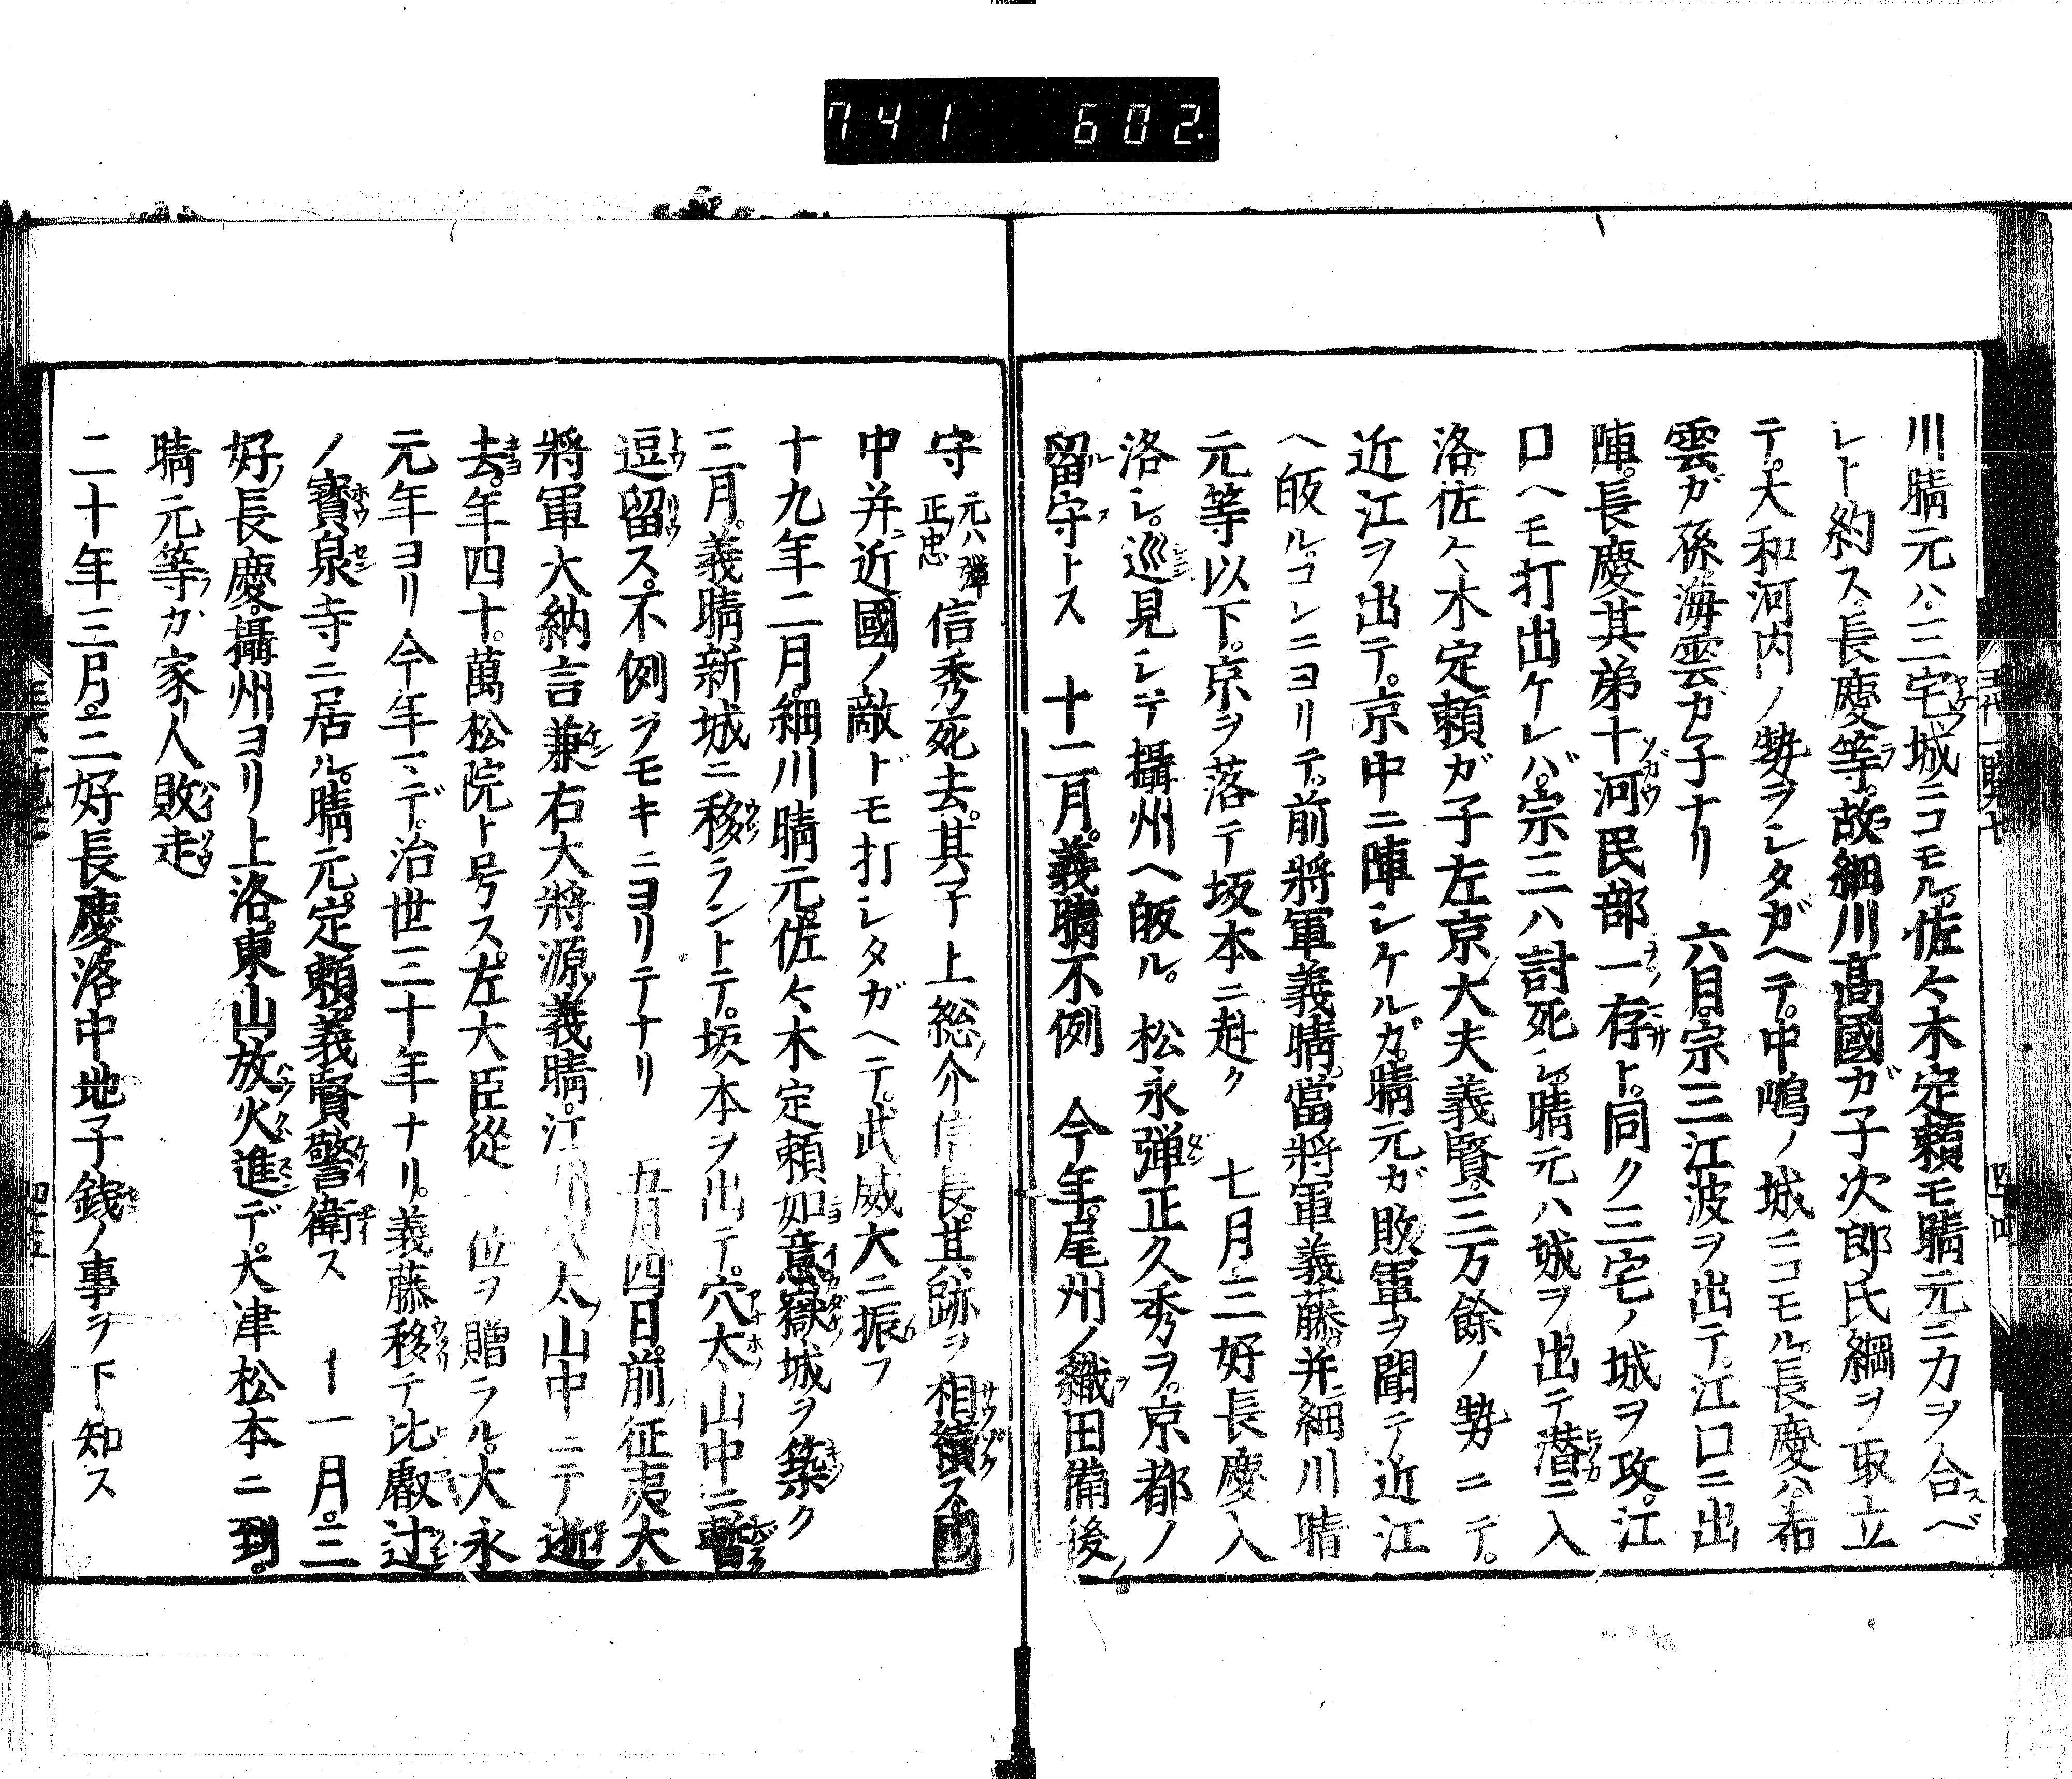 741 602.
川晴元ハ。三宅城ニコモル。佐々木定頼モ晴元ニ力ヲ合スベ
シト約ス。長慶等。故細川髙國ガ子次郎氏綱ヲ取立
テ。大和河内ノ勢ヲシタガヘテ。中嶋ノ城ニコモル。長慶ハ。希
雲ガ孫海雲カ子ナリ 六月。宗三江波ヲ出テ。江口ニ出
陣。長慶其弟十河民部一存ト。同ク三宅ノ城ヲ攻。江
口ヘモ打出ケレバ。宗三ハ討死シ。晴元ハ城ヲ出テ潜ニ入
洛。佐々木定頼ガ子左京大夫義賢。三万餘ノ勢ニテ。
近江ヲ出テ。京中ニ陣シケルガ。晴元ガ敗軍ヲ聞テ近江
ヘ皈ル。コレニヨリテ。前將軍義晴。當將軍義藤。并細川晴
元等以下。京ヲ落テ坂本ニ赴ク 七月。三好長慶入
洛シ。巡見シテ攝州ヘ皈ル。 松永彈正久秀ヲ。京都ノ
留守トス 十二月。義晴不例 今年。尾州ノ織田備後
守 元ハ彈正忠 信秀死去。其子上総ノ介信長。其跡ヲ相續ス。國
中并近國ノ敵ドモ打シタガヘテ。武威大ニ振フ
十九年二月。細川晴元。佐々木定頼如意嶽ノ城ヲ築ク
三月。義晴新城ニ移ラントテ。坂本ヲ出テ。穴太ノ山中ニ暫
逗留ス。不例ヲモキニヨリテナリ 五月四日。前征夷大
將軍大納言兼右大將源義晴。江州穴太ノ山中ニテ逝
去。年四十。萬松院ト号ス。左大臣從 位ヲ贈ラル。大永
元年ヨリ今年マデ。治世三十年ナリ。義藤移テ比叡辻
ノ寳泉寺ニ居ル。晴元。定頼。義賢警衛ス 十一月。三
好長慶。攝州ヨリ上洛。東山放火進デ。大津松本ニ到。
晴元等カ家人敗走
二十年三月。三好長慶洛中地子銭ノ事ヲ下知ス